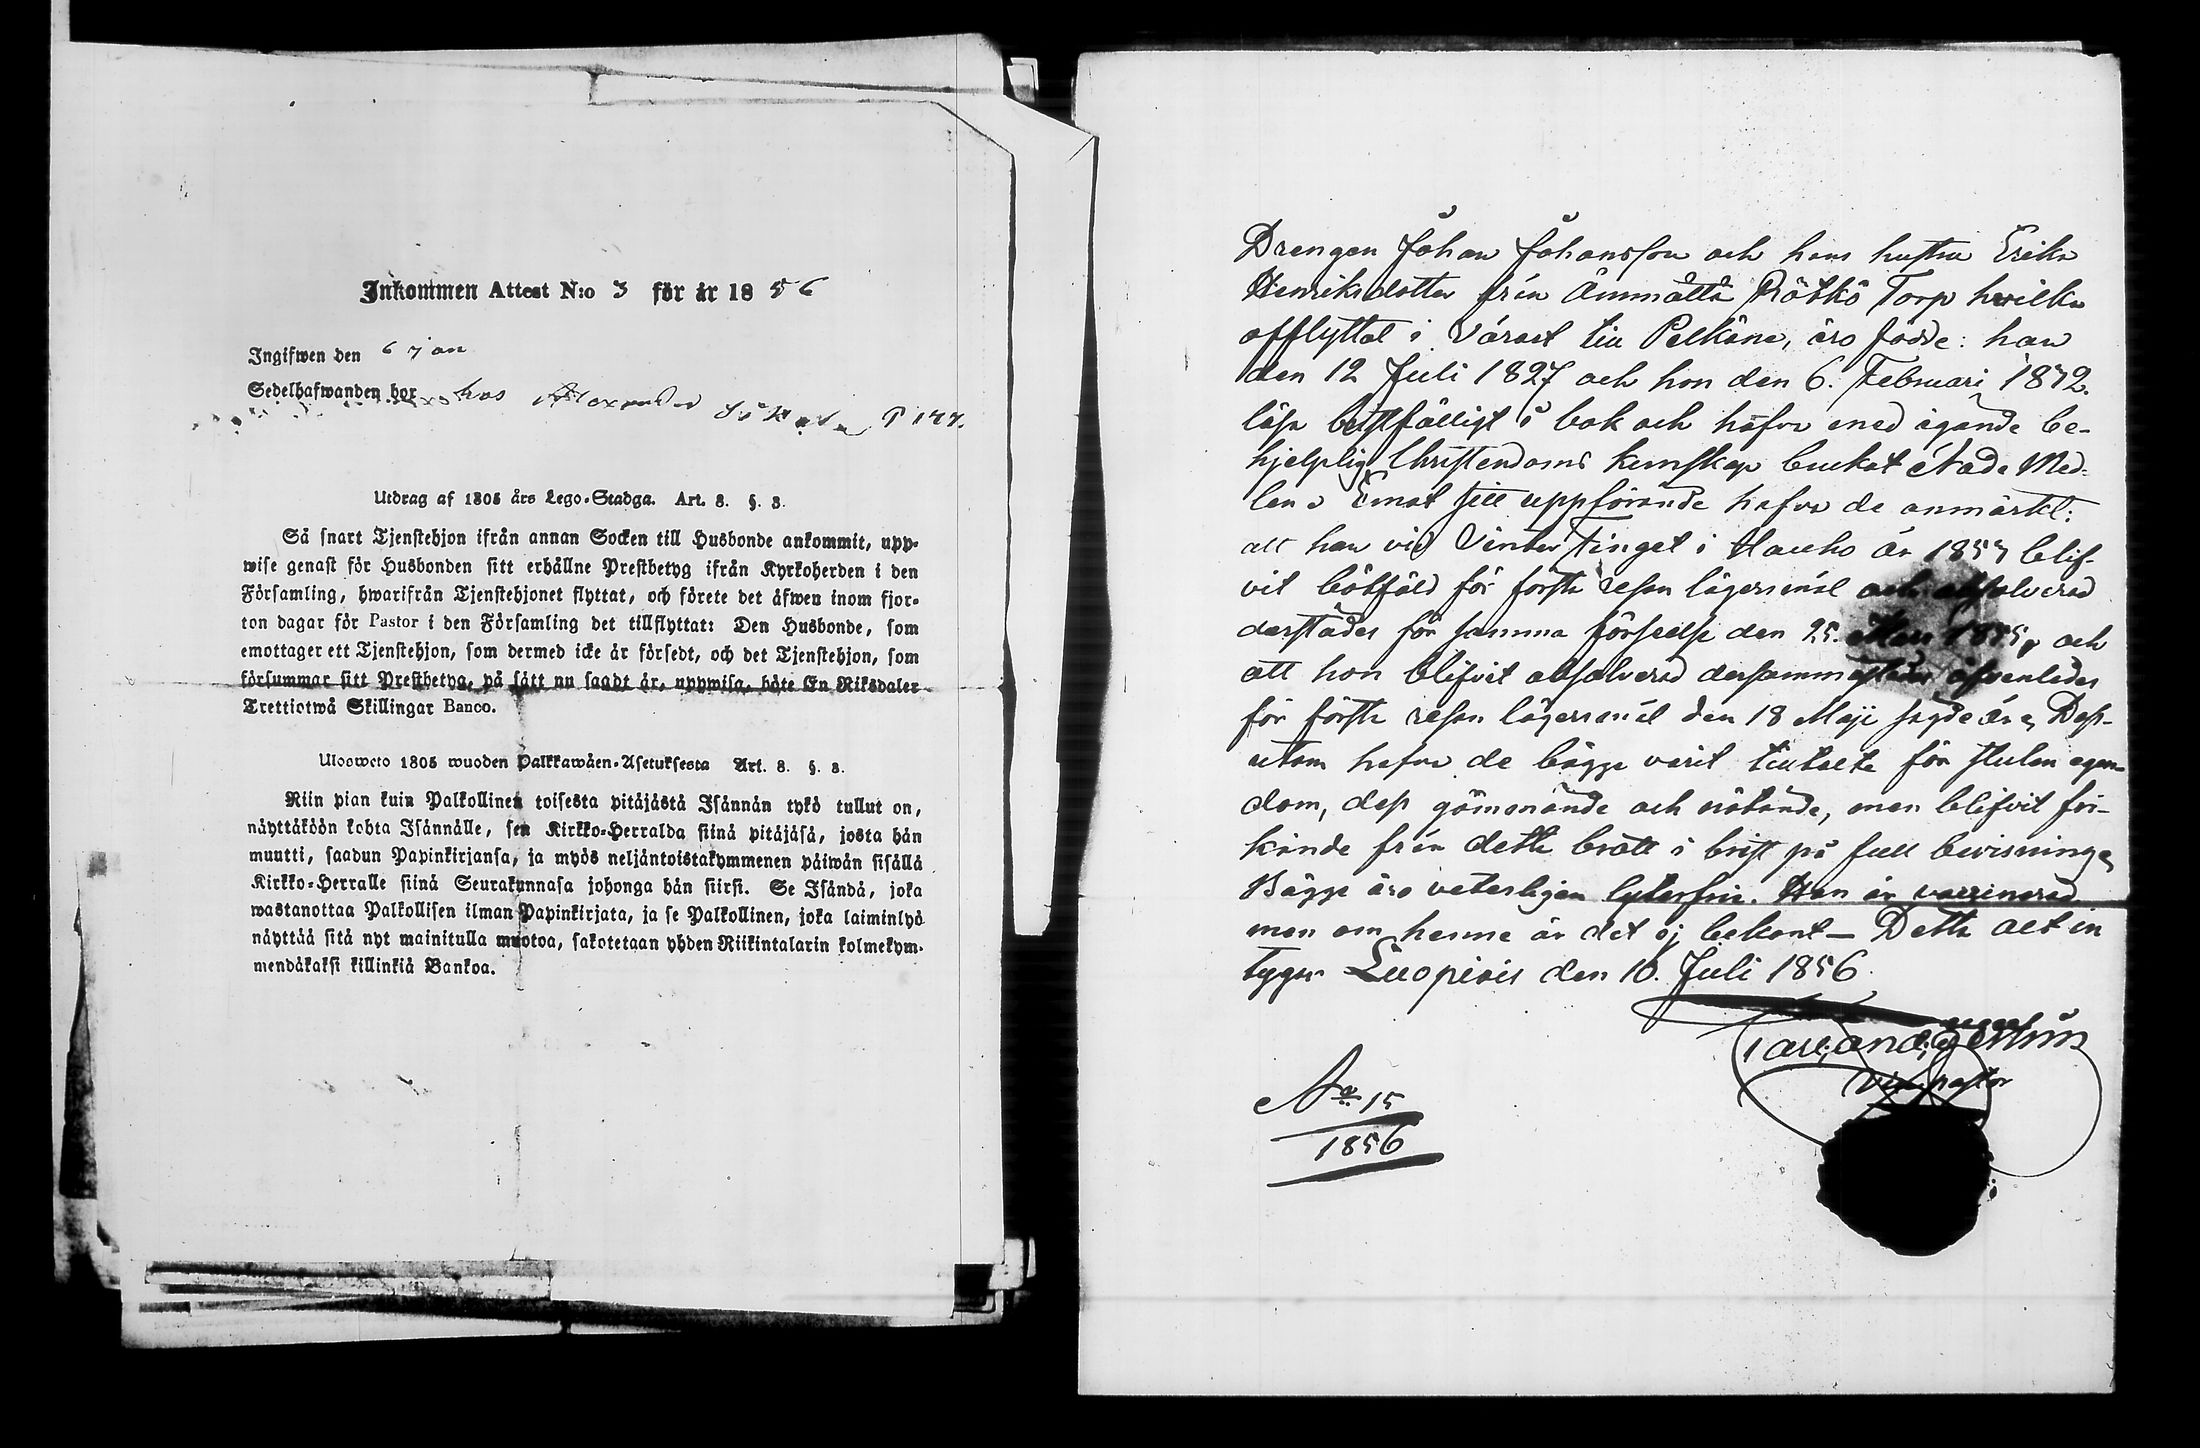 Inkommen Attest N:o 3 för år 1856
Ingifwen den 6 jan
Sedelhafwanden bor hos Alexander
Utdrag af 1805 års Lego-Stadga. Art. 8. §. 3.
Så snart Tjenstehjon ifrån annan Socken till Husbonde ankommit, upp-
wise genast för Husbonden sitt erhållne Prestbetyg ifrån Kyrkoherden i den
Församling, hwarifrån Tjenstehjonet flyttat, och förete det äfwen inom fjor-
ton dagar för Pastor i den Församling det tillflyttat: Den Husbonde, som
emottager ett Tjenstehjon, som dermed icke är försedt, och det Tjenstehjon, som
försummar sitt Prestbetyg, på sätt nu sagdt är, uppwisa, böte En Riksdaler
Trettiotwå Skillingar Banco.
Uloswcto 1805 wuoden Palkkawäen-Asetuksesta Art. 8. §. 3.
Niin pian kuin Palkollinen toisesta pitäjästä Isännän tykö tullut on,
näyttäköön kohta Isännälle, sen Kirkko-Herralda siinä pitäjäsä, josta hän
muutti, saadun Papinkirjansa, ja myös neljäntoistakymmenen päiwän sisällä
Kirkko-Herralle siinä Seurakunnasa johonga hän siirsi. Se Isändä, joka
wastanottaa Palkollisen ilman Papinkirjata, ja se Palkollinen, joka laiminlyö
näyttää sitä nyt mainitulla muotoa, sakotetaan yhden Riikintalarin kolmekym-
mendäkaksi killinkiä Bankoa.
Drengen Johan Johansson och hans hustru Erika
Henriksdotter från Ämmätte Rötkö Torp hvilka
afflyttat i Våras till Pelkäne, äro födde: han
den 12 Juli 1827 och hon den 6. Februari 1832.
läsa försvarligt i bok och hafva med ägande be-
hjelplig Christendoms kunskap brukat Nåde Med-
len. Emot till uppförande hafva de anmärkt:
att han vid Vinter Tinget i Hauho år 1855 blif-
vit bötfäld för första resan lägersmål och absolverad
derstädes för samma förseelse den 25. Mars 1855, och
att hon blifvit absolverad dersammastädes äfvenledes
för första resan lägersmål den 18 Maji sagde år, Dess-
utom hafva de bägge varit tilltalte för stulen egen-
dom, dess gömmande och nötande, men blifvit fri-
kände från detta brott i brist på full bevisning,
Bägge äro veterligen lytesfrie. Han är vaccinerad
men om henne är det ej bekant — Detta allt in-
tygar Luopiois den 10. Juli 1856.
vice pastor
No 15
1856